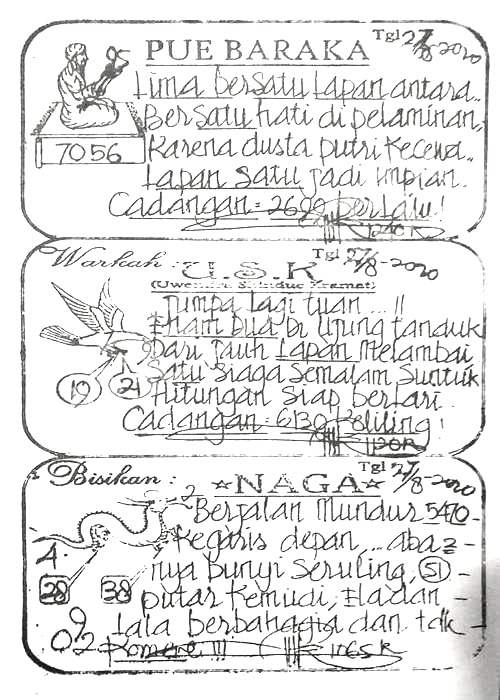 PUE BARAKA Tgl 27/8-2020
Lima bersatu Lapan antara..
Bersatu hati di pelaminan,
7056 Karena dusta putri kecewa..
Lapan satu jadi impian.
Cadangan = 2699 berlalu!
Warkah : U.S.K Tgl 27/8-2020
Jumpa lagi tuan ... !!
Enam Dua Di Ujung tanduk
Dari jauh Lapan Melambai
19 21 Satu siaga semalam suntuk
Hitungan siap berlari
Cadangan = 6130
Bisikan : NAGA Tgl 27/8-2020
Berjalan Mundur 5470-
Kegaris depan ... aba2-
4. nya bunyi seruling, 51 -
28 38 putar kemudi, Eladan -
9 lala berbahagia dan tak -
02 Komere !!!